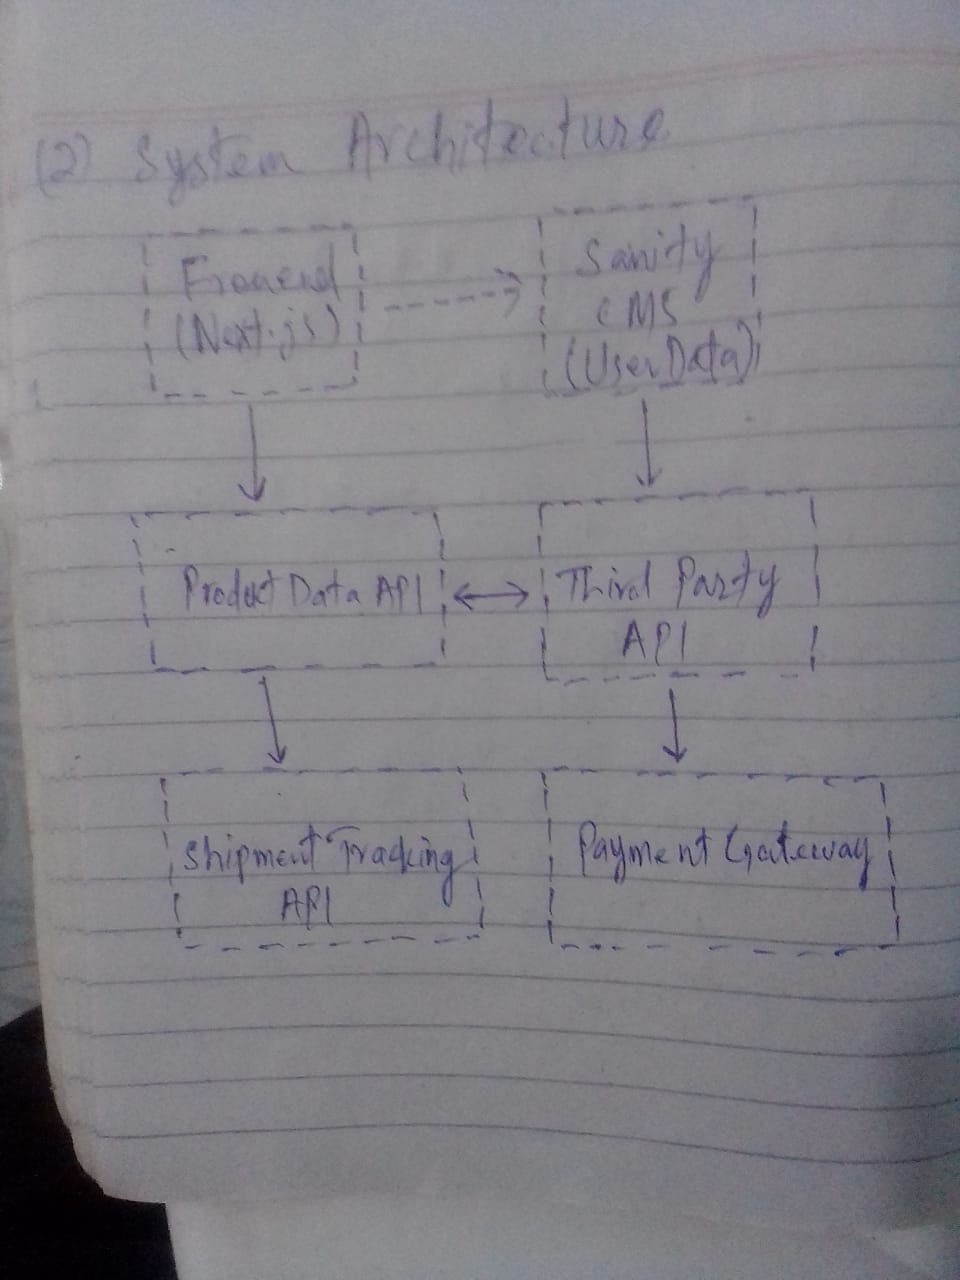 (2) System Architecture
Fronend
(Next.js)
Sanity
CMS
(User Data)
Product Data API
Third Party
API
Shipment Tracking
API
Payment Gateway